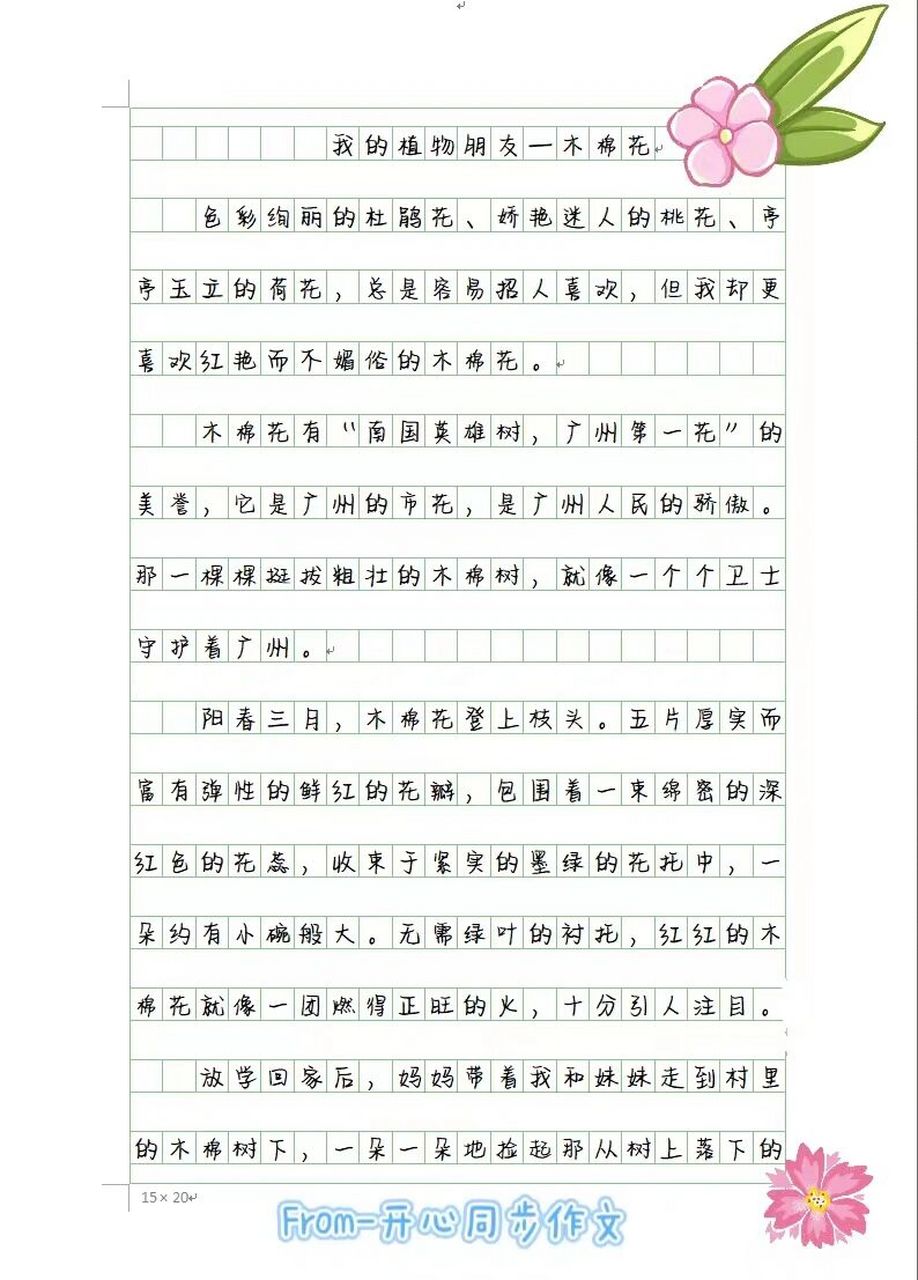 我的植物朋友一木棉花
色彩绚丽的杜鹃花、娇艳迷人的桃花、亭
亭玉立的荷花，总是容易招人喜欢，但我却更
喜欢红艳而不媚俗的木棉花。
木棉花有“南国英雄树，广州第一花”的
美誉，它是广州的市花，是广州人民的骄傲。
那一棵棵挺拔粗壮的木棉树，就像一个个卫士
守护着广州。
阳春三月，木棉花登上枝头。五片厚实而
富有弹性的鲜红的花瓣，包围着一束绵密的深
红色的花蕊，收束于紧实的墨绿的花托中，一
朵约有小碗般大。无需绿叶的衬托，红红的木
棉花就像一团燃得正旺的火，十分引人注目。
放学回家后，妈妈带着我和妹妹走到村里
的木棉树下，一朵一朵地捡起那从树上落下的
15×20
From-开心同步作文